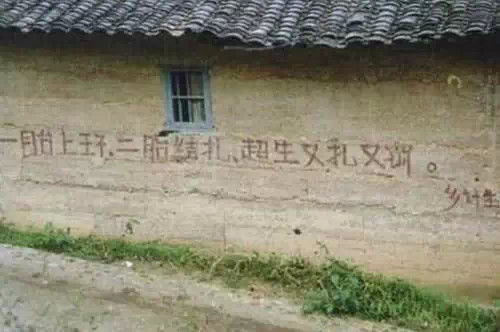 一胎上环、二胎结扎、超生又扎又训。
乡计生